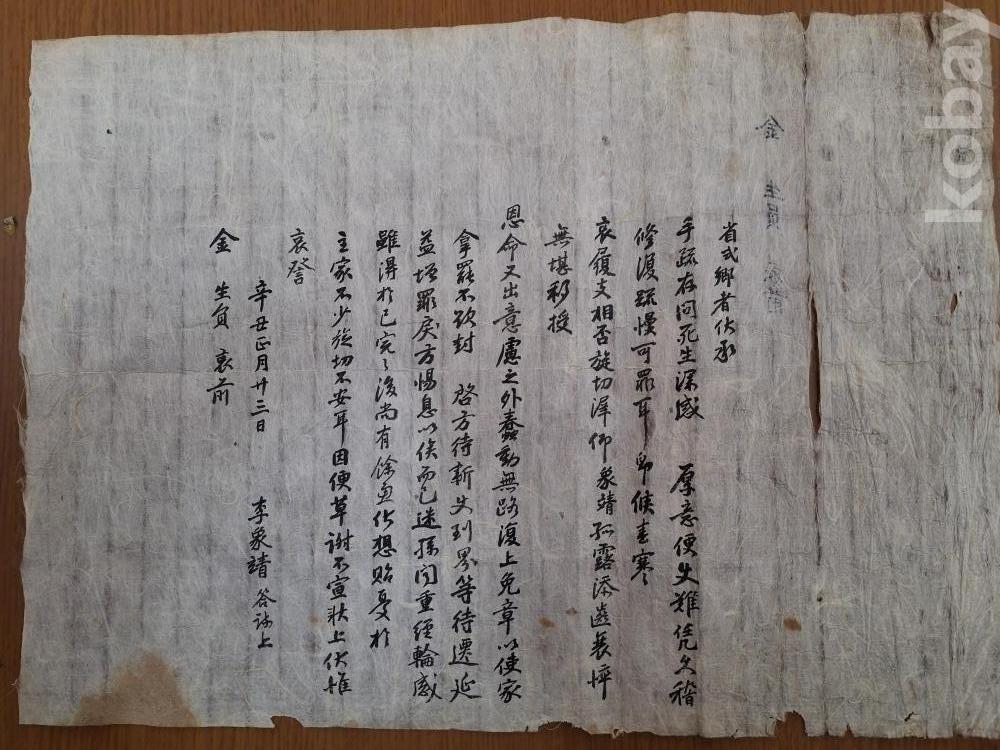 金 生員 哀前
省式鄕者伏承
手疏存問死生深感 厚意便史難凭久稽
修復疏慢可罪耳卽候春寒
哀履支相否旋切漄仰象靖孤露添齒衰悴
無堪移授
恩命又出意慮之外蠢動無路復上免章以使家
拿罷不欽封 啓方待新史到界等待遷延
益增罪戾方惕息以俟而已迷孫間重經輪感
雖得於已完之後尚有餘 化想貽憂於
主家不少旋切不安耳因便草謝不宣狀上伏惟
哀詧
辛丑正月廿三日 李象靖 答疏上
金 生員 哀前
kobay